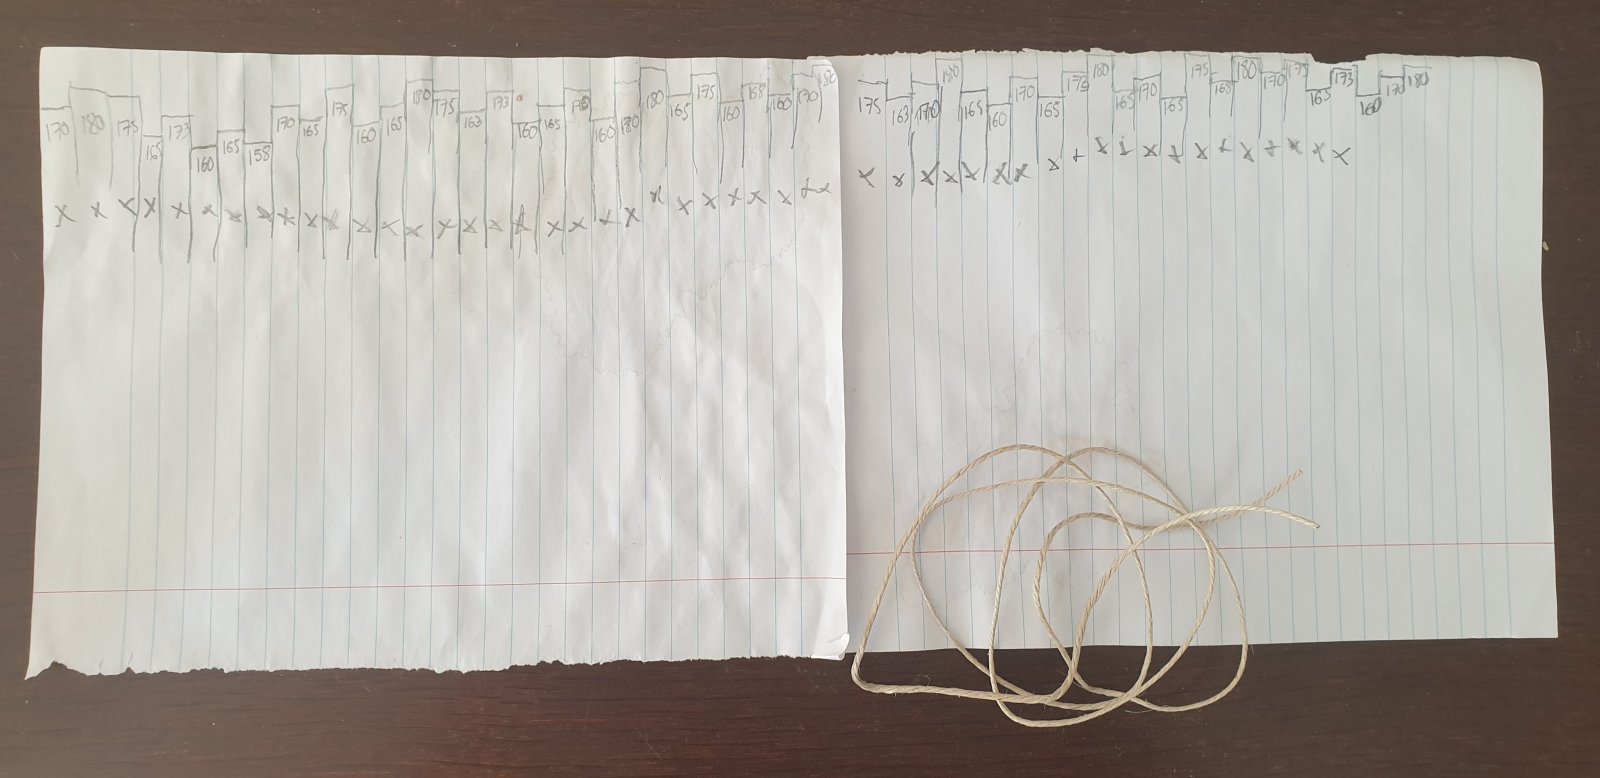 170 180 175 165 173 160 165 158 170 165 175 160 165 180 175 163 173 160 165 170 160 180 180 165 175 160 165 160 170 180
x x x x x x x x x x x x x x x x x x x x x x x x x x x x x x
175 163 170 180 165 160 170 165 173 180 165 170 165 175 165 180 170 175 165 173 160 170 180
x x x x x x x x x x x x x x x x x x x x